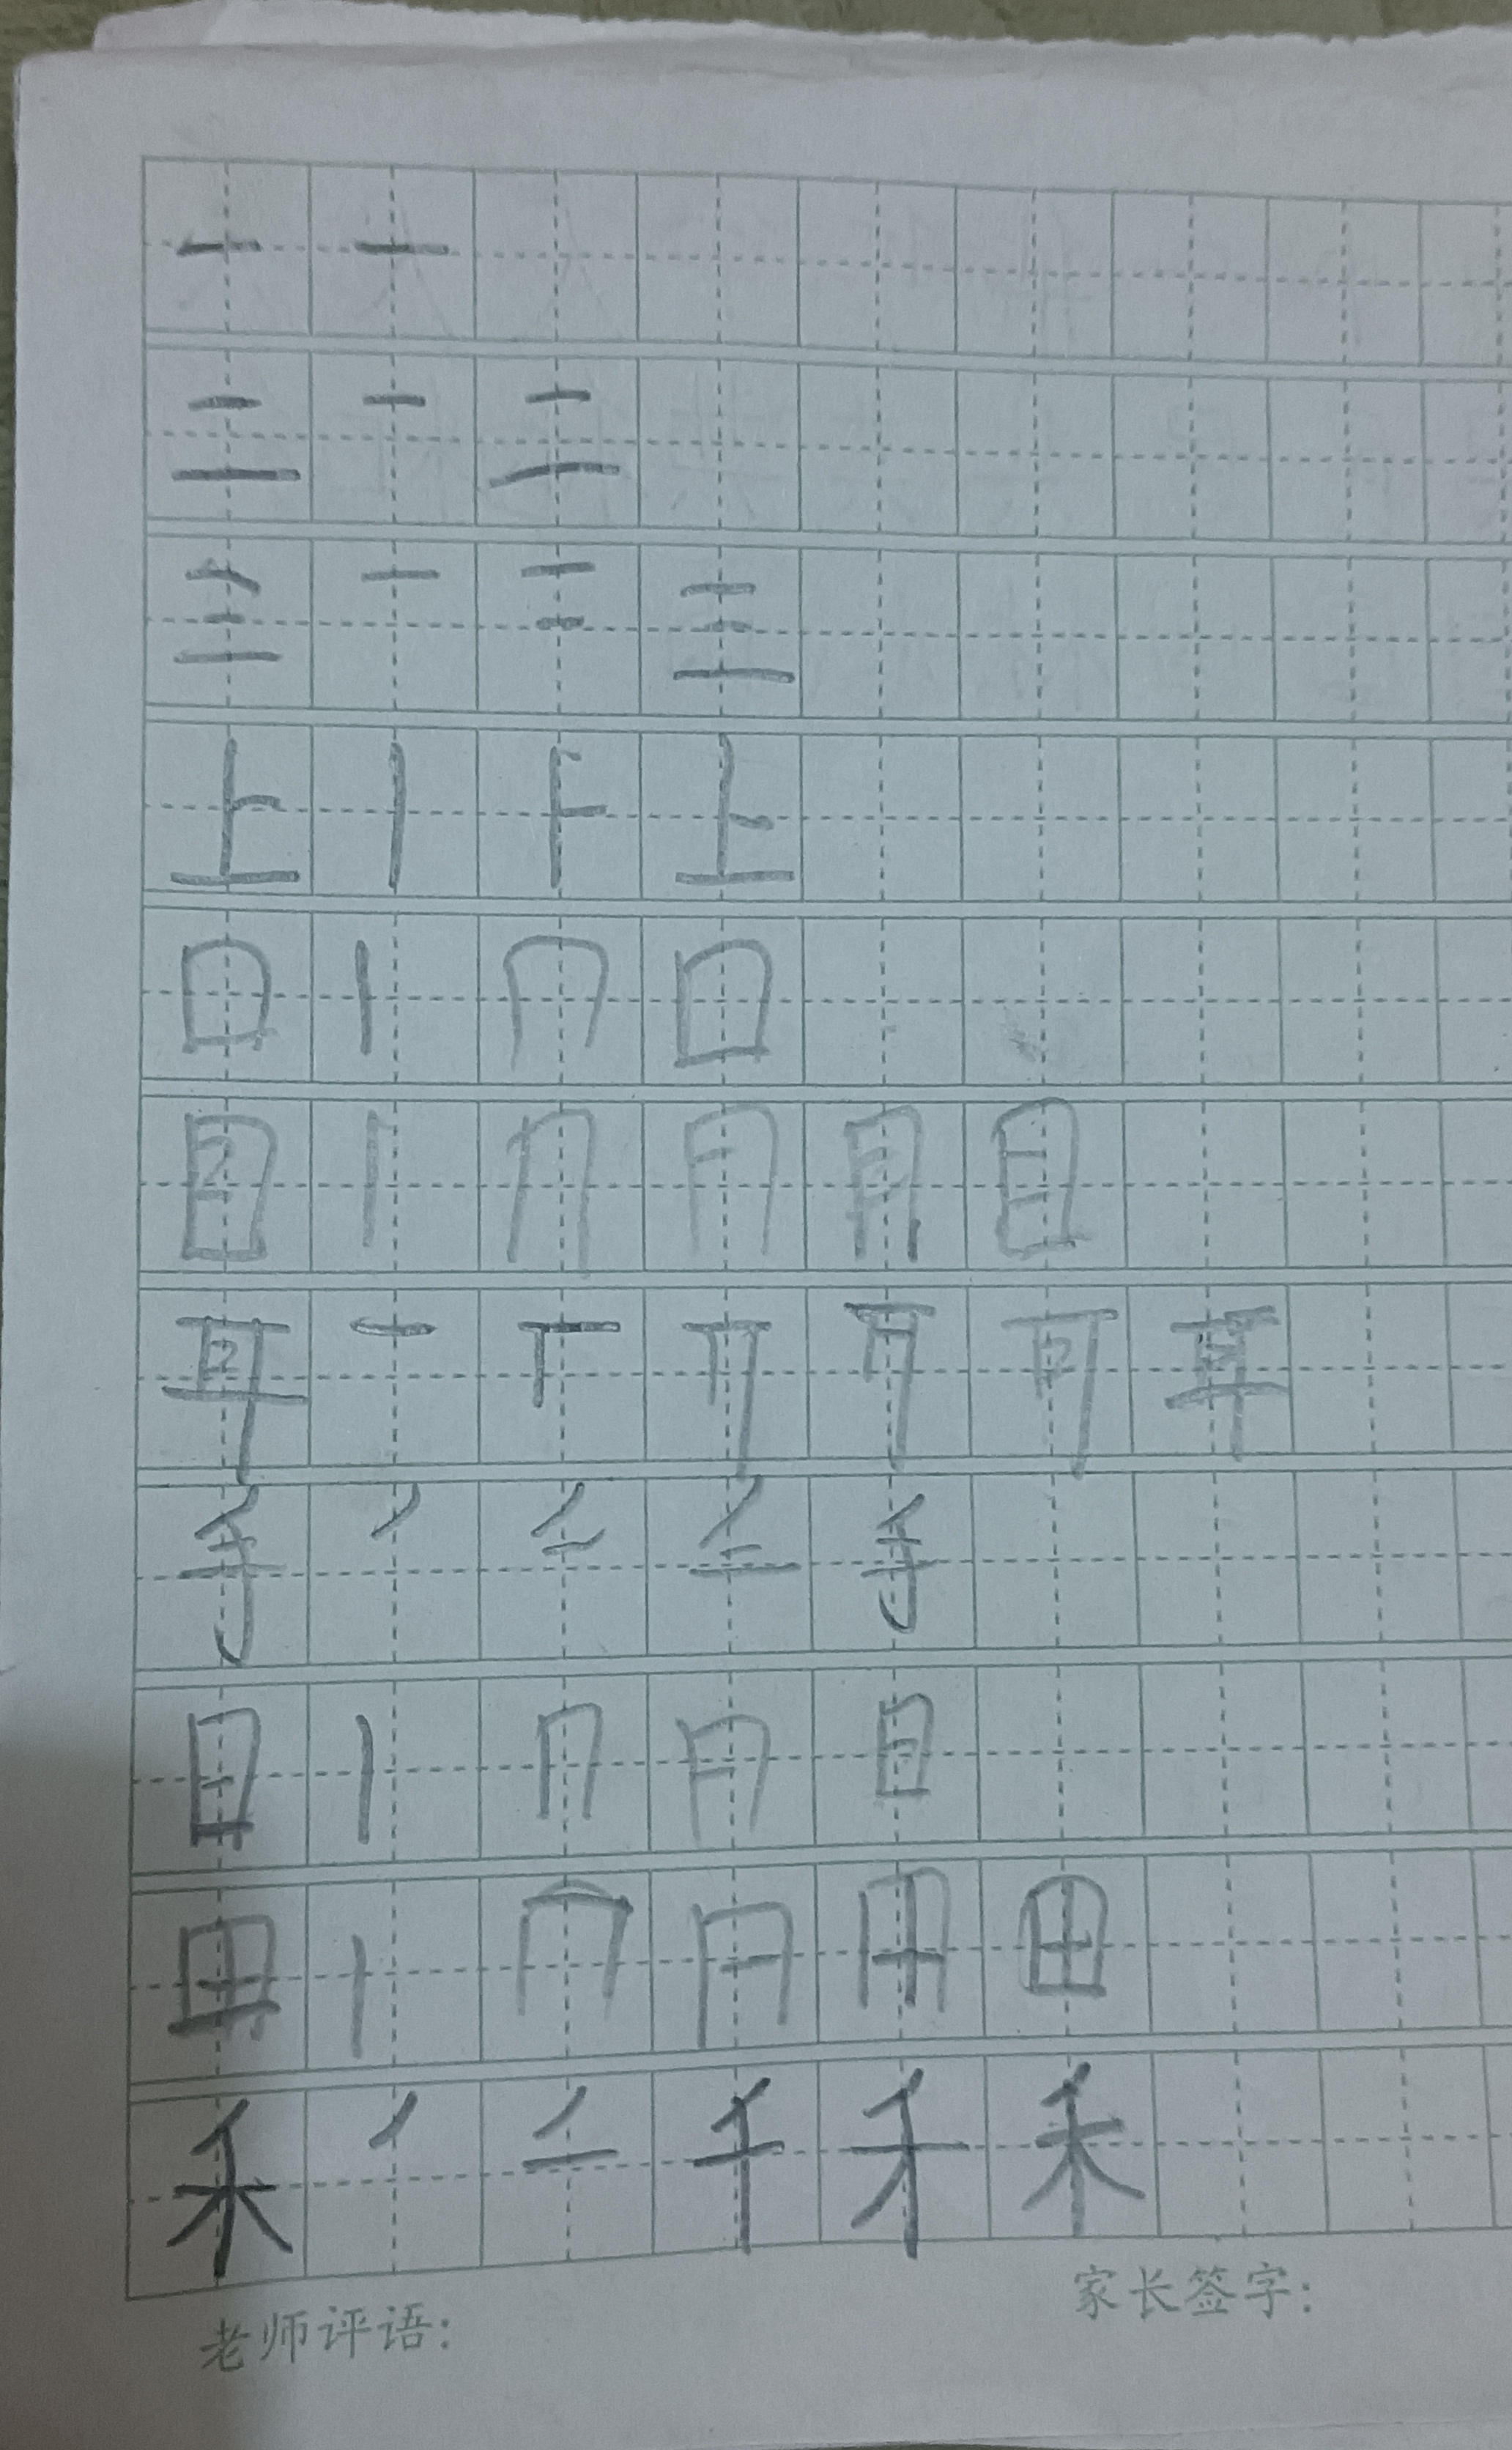 一 一
二 一 二
三 一 二 三
上 丨 ⺊ 上
口 丨 冂 口
目 丨 冂 目
耳 一 丅 耳
手 丿 手
日 丨 冂 日
田 丨 冂 田
禾 丿 二 千 禾
老师评语:
家长签字: